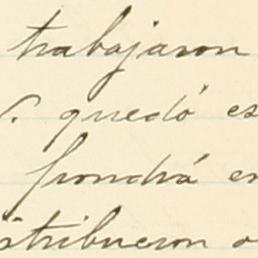 trabajaron
s. quedó es
pondrá en
stribueron a